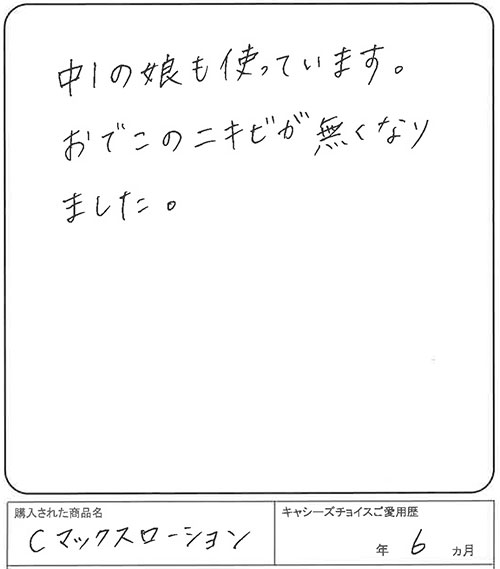 中1の娘も使っています。
おでこのニキビが無くなり
ました。
購入された商品名
Cマックスローション
キャシーズチョイスご愛用歴
年 6 ヵ月